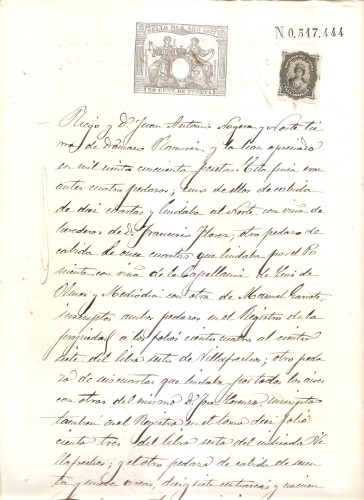 N 0.517.444
SELLO 11º AÑO 1877
50 CENT. DE PESETA
Riego y D. Juan Antonio y Norte tier
ra de Damaso Ramirez y la han apreciado
en mil ciento cincuenta pesetas. Esta finca eran
antes cuatro pedazos; uno de ellos de cabida
de diez cuartas y lindaba al Norte con viña de
herederos de D. Francisco Florez; otro pedazo de
cabida de once cuartas que lindaba por el Po
niente con viña de la Capellania de Luis de
Olmos y Mediodia con otra de Manuel
inscriptos ambos pedazos en el Registro de la
propiedad a los folios ciento cuatro al ciento
siete del libro sesto de Villafrechos; otro peda
zo de seis cuartas que lindaba por todos los aires
con otras del mismo D. Jose Lorenzo, inscripto
tambien en el Registro en el tomo diez folio
ciento tres del libro sesto del indicado Vi
llafrechos; y el otro pedazo de cabida de sesen
ta y nueve areas, diez y siete centiareas y cincuen